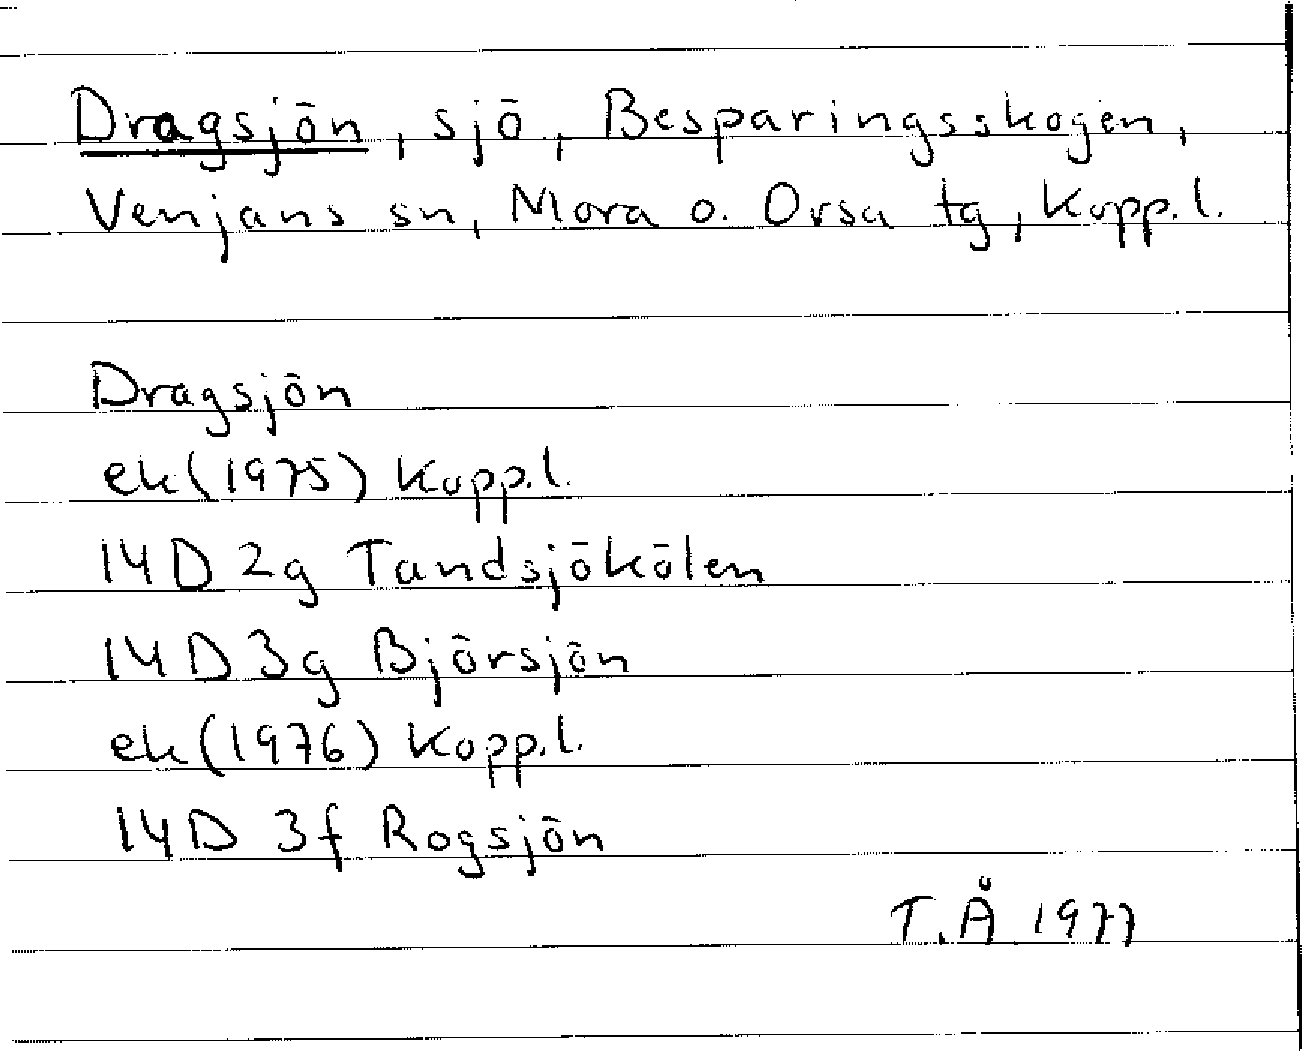 Dragsjön, sjö, Besparingsskogen,
Venjans sn, Mora o. Orsa tg, Kopp.l.
Dragsjön
ek(1975) Kopp.l.
14D 2g Tandsjökölen
14D 3g Björsjön
ek(1976) Kopp.l.
14D 3f Rogsjön
T.Å 1977